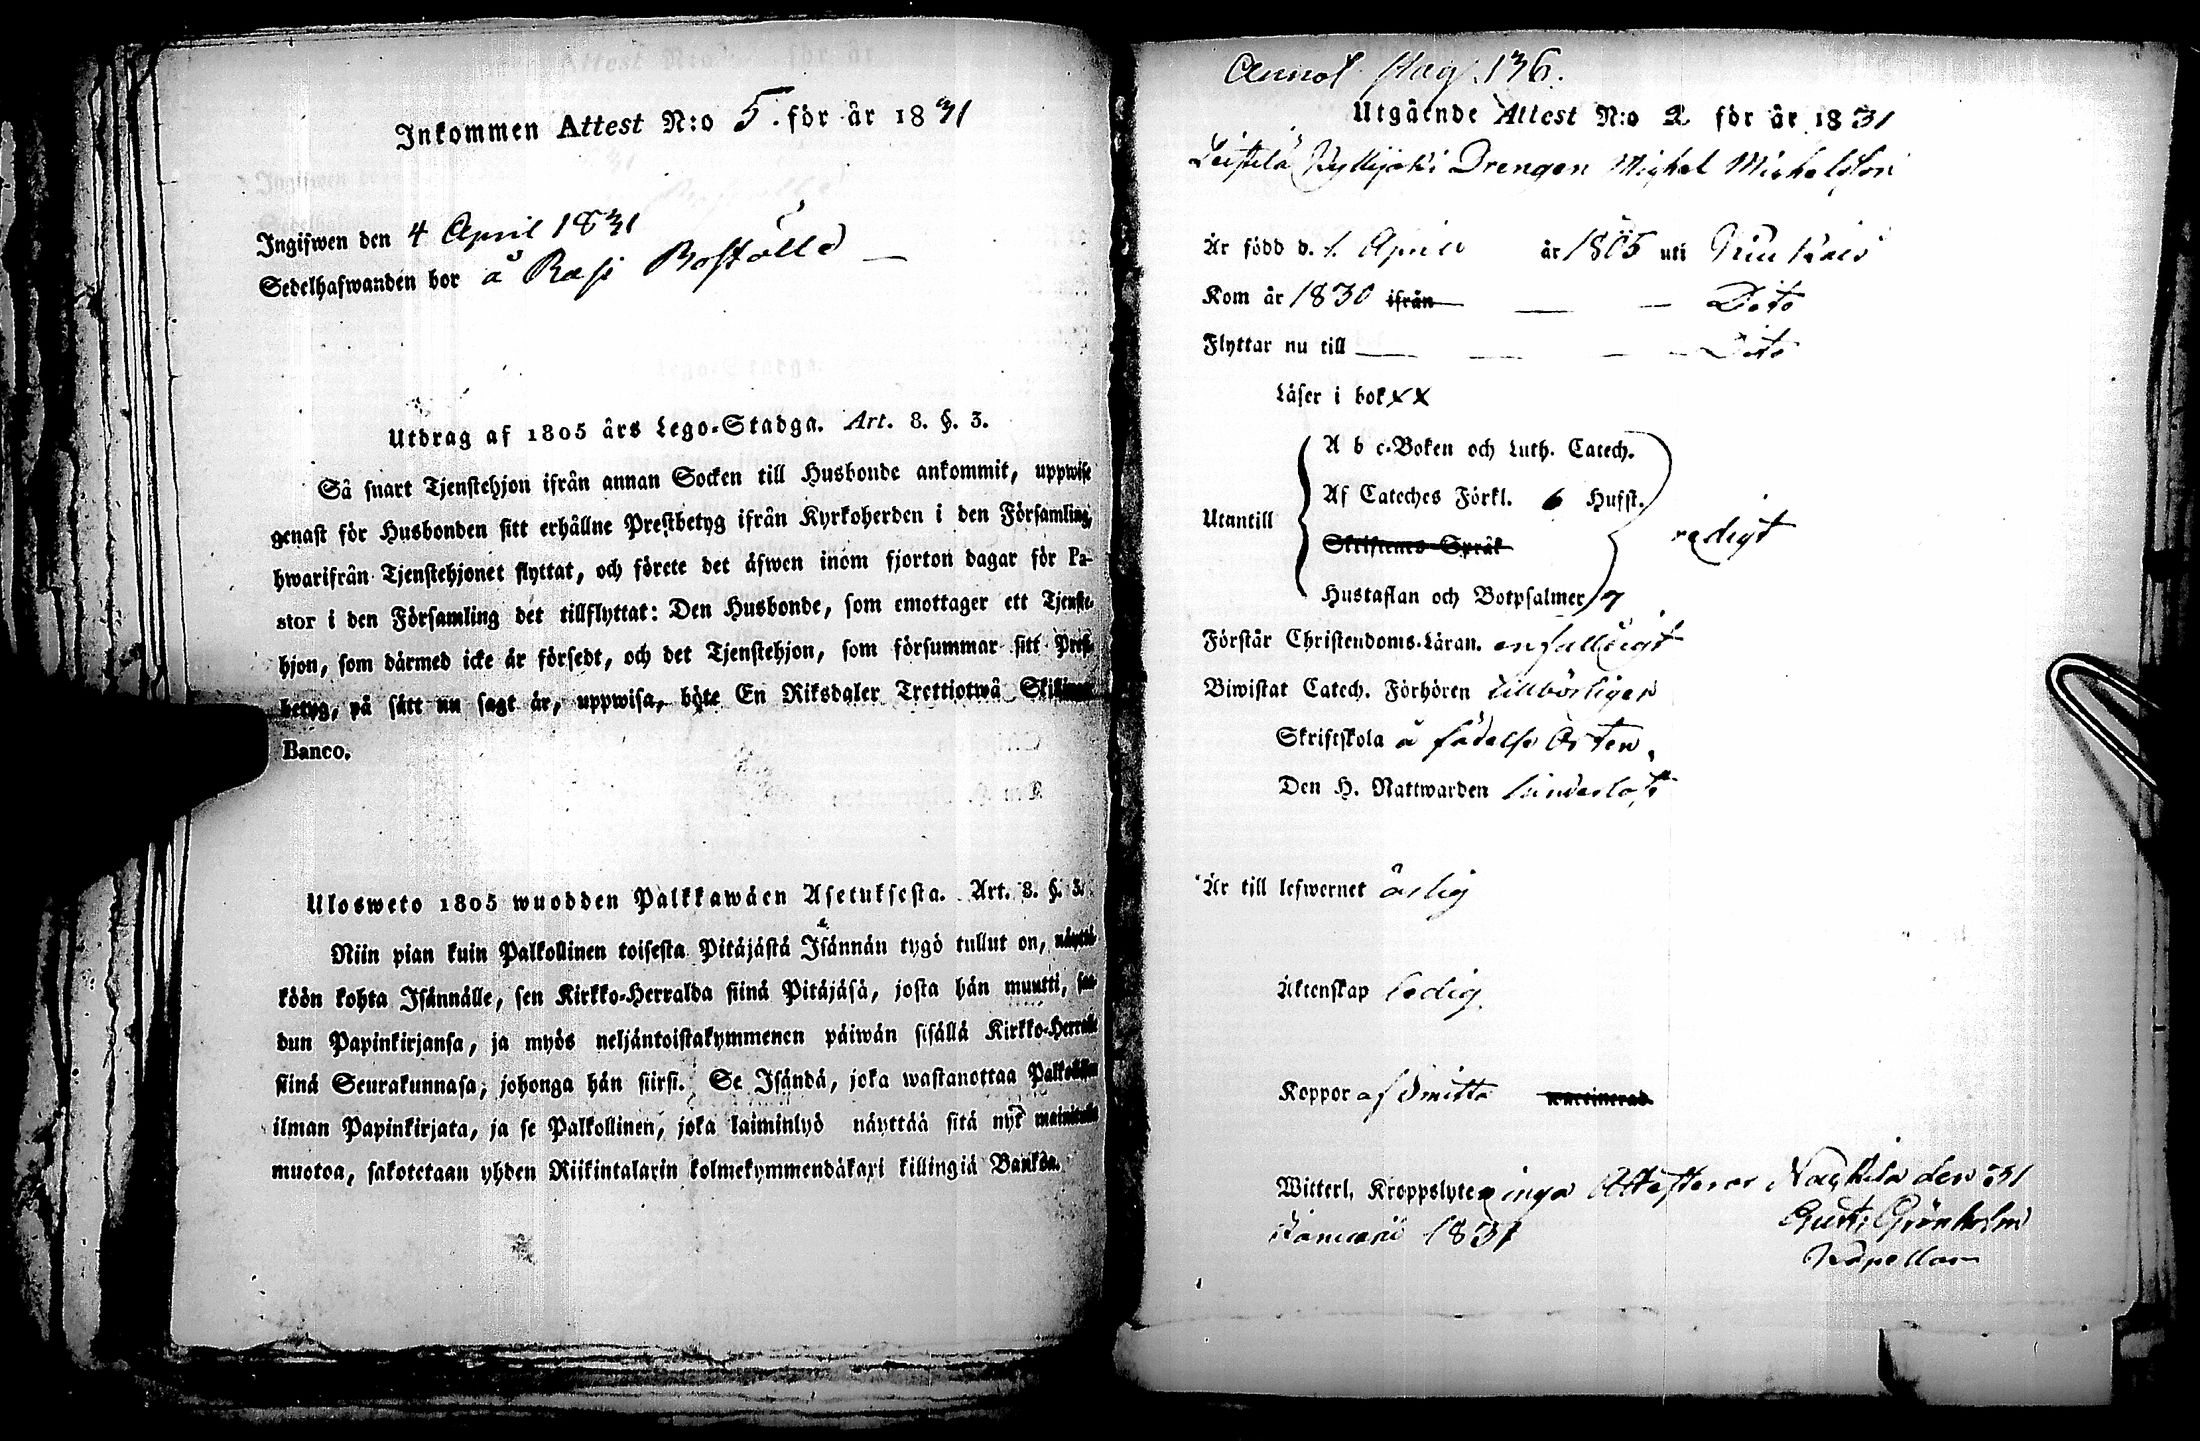 Inkommen Attest N:o 5. för år 1831
Ingifwen den 4 April 1831
Sedelhafwanden bor å Rasi Boställe
Utdrag af 1805 års Lego-Stadga. Art. 8. §. 3.
Så snart Tjenstehjon ifrån annan Socken till Husbonde ankommit, uppwise
genast för Husbonden sitt erhållne Prestbetyg ifrån Kyrkoherden i den Församling,
hwarifrån Tjenstehjonet flyttat, och förete det äfwen inom fjorton dagar för Pa-
stor i den Församling det tillflyttat: Den Husbonde, som emottager ett Tjenste-
hjon, som därmed icke är försedt, och det Tjenstehjon, som försummar sitt Prest-
betyg, på sätt nu sagt är, uppwisa, böte En Riksdaler Trettiotwå Skillingar
Banco.
Ulosweto 1805 wuodden Palkkawäen Asetuksesta. Art. 8. §. 3.
Niin pian kuin Palkollinen toisesta Pitäjästä Isännän tygö tullut on, näyttä-
köön kohta Isännälle, sen Kirkko-Herralda siinä Pitäjäsä, josta hän muutti, saa-
dun Papinkirjansa, ja myös neljäntoistakymmenen päiwän sisällä Kirkko-Herralle
siinä Seurakunnasa, johonga hän siirsi. Se Isändä, joka wastanottaa Palkollisen
ilman Papinkirjata, ja se Palkollinen, joka laiminlyö näyttää sitä nyt mainitulla
muotoa, sakotetaan yhden Riikintalarin kolmekymmendäkaxi killingiä Bankoa.
Annot. Pag. 136.
Utgående Attest N:o 2 för år 1831
Leistilä Kyllijoki Drengen Michel Michelsson
Är född d. 1. April år 1805 uti
Kom år 1830 ifrån Dito
Flyttar nu till Dito
Läser i bok xx
A b c-Boken och Luth. Catech.
Af Cateches Förkl. 6 Hufst.
Utantill redigt
Skriftenes Språk
Hustaflan och Botpsalmer 7
Förstår Christendoms-Läran. enfalldigt
Biwistat Catech. Förhören tillbörligen
Skriftskola å födelse Orten.
Den H. Nattwarden
Är till lefwernet ärlig
Äktenskap ledig.
Koppor af Smitta vaccinerad
Witterl. Kroppslyten inga Attesteras Nackila den 31
Januarii 1831 Gust. Grönholm
Kapellan